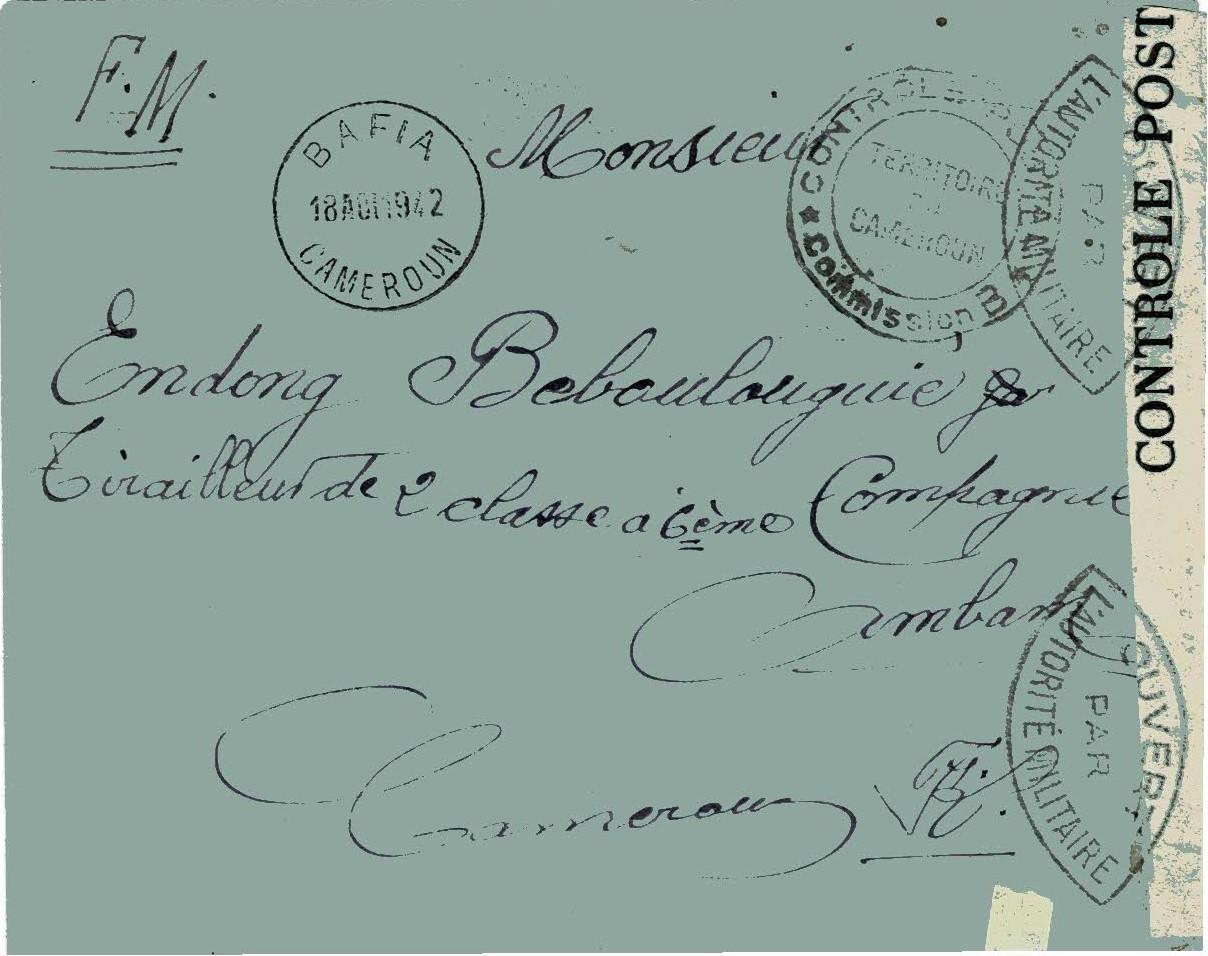 F.M.
BAFIA
18 AOU 1942
CAMEROUN
CONTROLE
TERRITOIRE
DU
CAMEROUN
★ Commission B
L'AUTORITÉ MILITAIRE
PAR
CONTROLE POST
Monsieur
Endong Beboulouguie
Tirailleur de 2 classe à 6ème Compagnie
Ambam
Cameroun F.
OUVERT
PAR
L'AUTORITÉ MILITAIRE